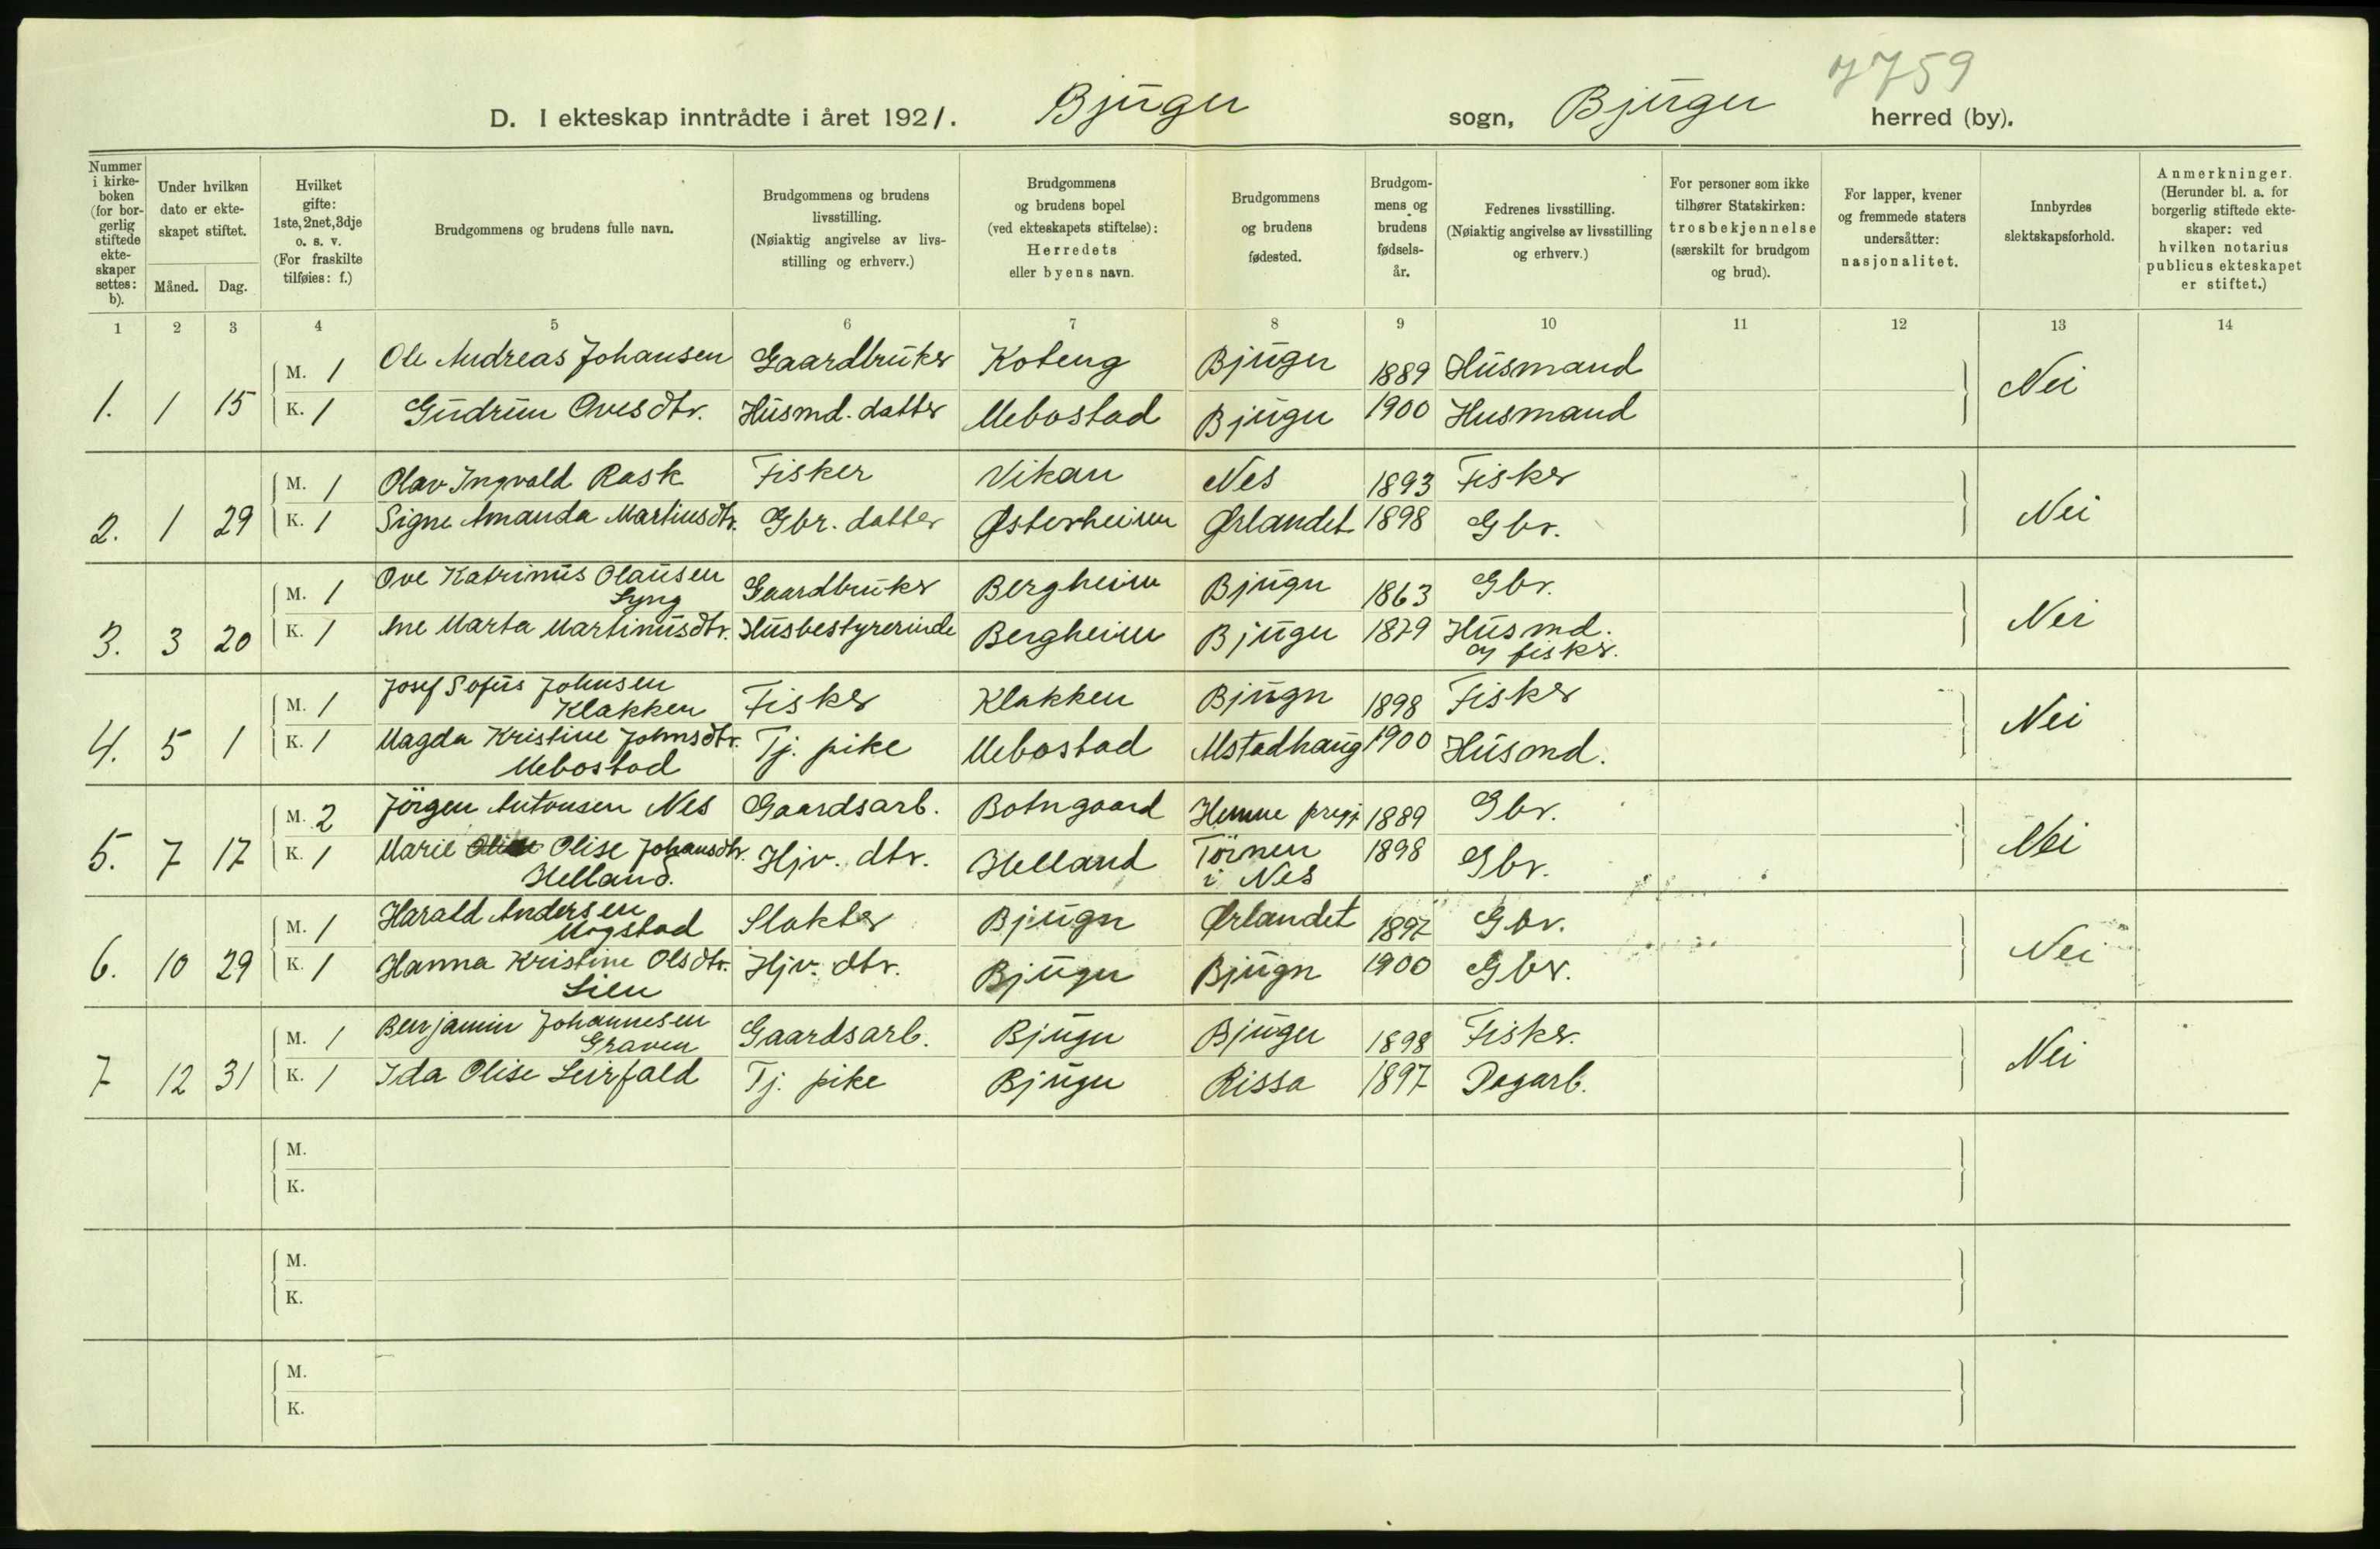 7759
D. I ekteskap inntrådte i året 1921. Bjugn sogn, Bjugn herred (by).
Nummer i kirke-boken (for bor-gerlig stiftede ekte-skaper settes: b).
Under hvilken dato er ekte-skapet stiftet.
Måned. Dag.
Hvilket gifte: 1ste, 2net, 3dje o. s. v. (For fraskilte tilføies: f.)
Brudgommens og brudens fulle navn.
Brudgommens og brudens livsstilling. (Nøiaktig angivelse av livs-stilling og erhverv.)
Brudgommens og brudens bopel (ved ekteskapets stiftelse): Herredets eller byens navn.
Brudgommens og brudens fødested.
Brudgom-mens og brudens fødsels-år.
Fedrenes livsstilling. (Nøiaktig angivelse av livsstilling og erhverv.)
For personer som ikke tilhører Statskirken: trosbekjennelse (særskilt for brudgom og brud).
For lapper, kvener og fremmede staters undersåtter: nasjonalitet.
Innbyrdes slektskapsforhold.
Anmerkninger. (Herunder bl. a. for borgerlig stiftede ekte-skaper: ved hvilken notarius publicus ekteskapet er stiftet.)
1 2 3 4 5 6 7 8 9 10 11 12 13 14
M. 1 Ole Andreas Johansen Gaardbruker Koteng Bjugn 1889 Husmand
1. 1 15 K. 1 Gudrun Ovesdtr. Husmd. datter Mebostad Bjugn 1900 Husmand Nei
M. 1 Olav Ingvald Rask Fisker Vikan Nes 1893 Fisker
2. 1 29 K. 1 Signe Amanda Martinsdtr. Gbr. datter Østerheim Ørlandet 1898 Gbr. Nei
M. 1 Ove Katrinus Olausen Lyng Gaardbruker Bergheim Bjugn 1863 Gbr.
3. 3 20 K. 1 Ane Marta Martinusdtr. Husbestyrerinde Bergheim Bjugn 1879 Husmd. og fisker. Nei
M. 1 Josef Sofus Johnsen Klakken Fisker Klakken Bjugn 1898 Fisker
4. 5 1 K. 1 Magda Kristine Johnsdtr. Mebostad Tj. pike Mebostad Mstadhaug 1900 Husmd. Nei
M. 2 Jörgen Antonsen Nes Gaardsarb. Botngaard Hemne pregj. 1889 Gbr.
5. 7 17 K. 1 Marie Olise Johansdtr. Helland. Hjv. dtr. Helland Törnen i Nes 1898 Gbr. Nei
M. 1 Harald Andersen Mogstad Slakter Bjugn Ørlandet 1897 Gbr.
6. 10 29 K. 1 Hanna Kristine Olsdtr. Lien Hjv. dtr. Bjugn Bjugn 1900 Gbr. Nei
M. 1 Benjamin Johannesen Graven Gaardsarb. Bjugn Bjugn 1898 Fisker.
7 12 31 K. 1 Ida Olise Leirfald Tj. pike Bjugn Rissa 1897 Dagarb. Nei
M.
K.
M.
K.
M.
K.